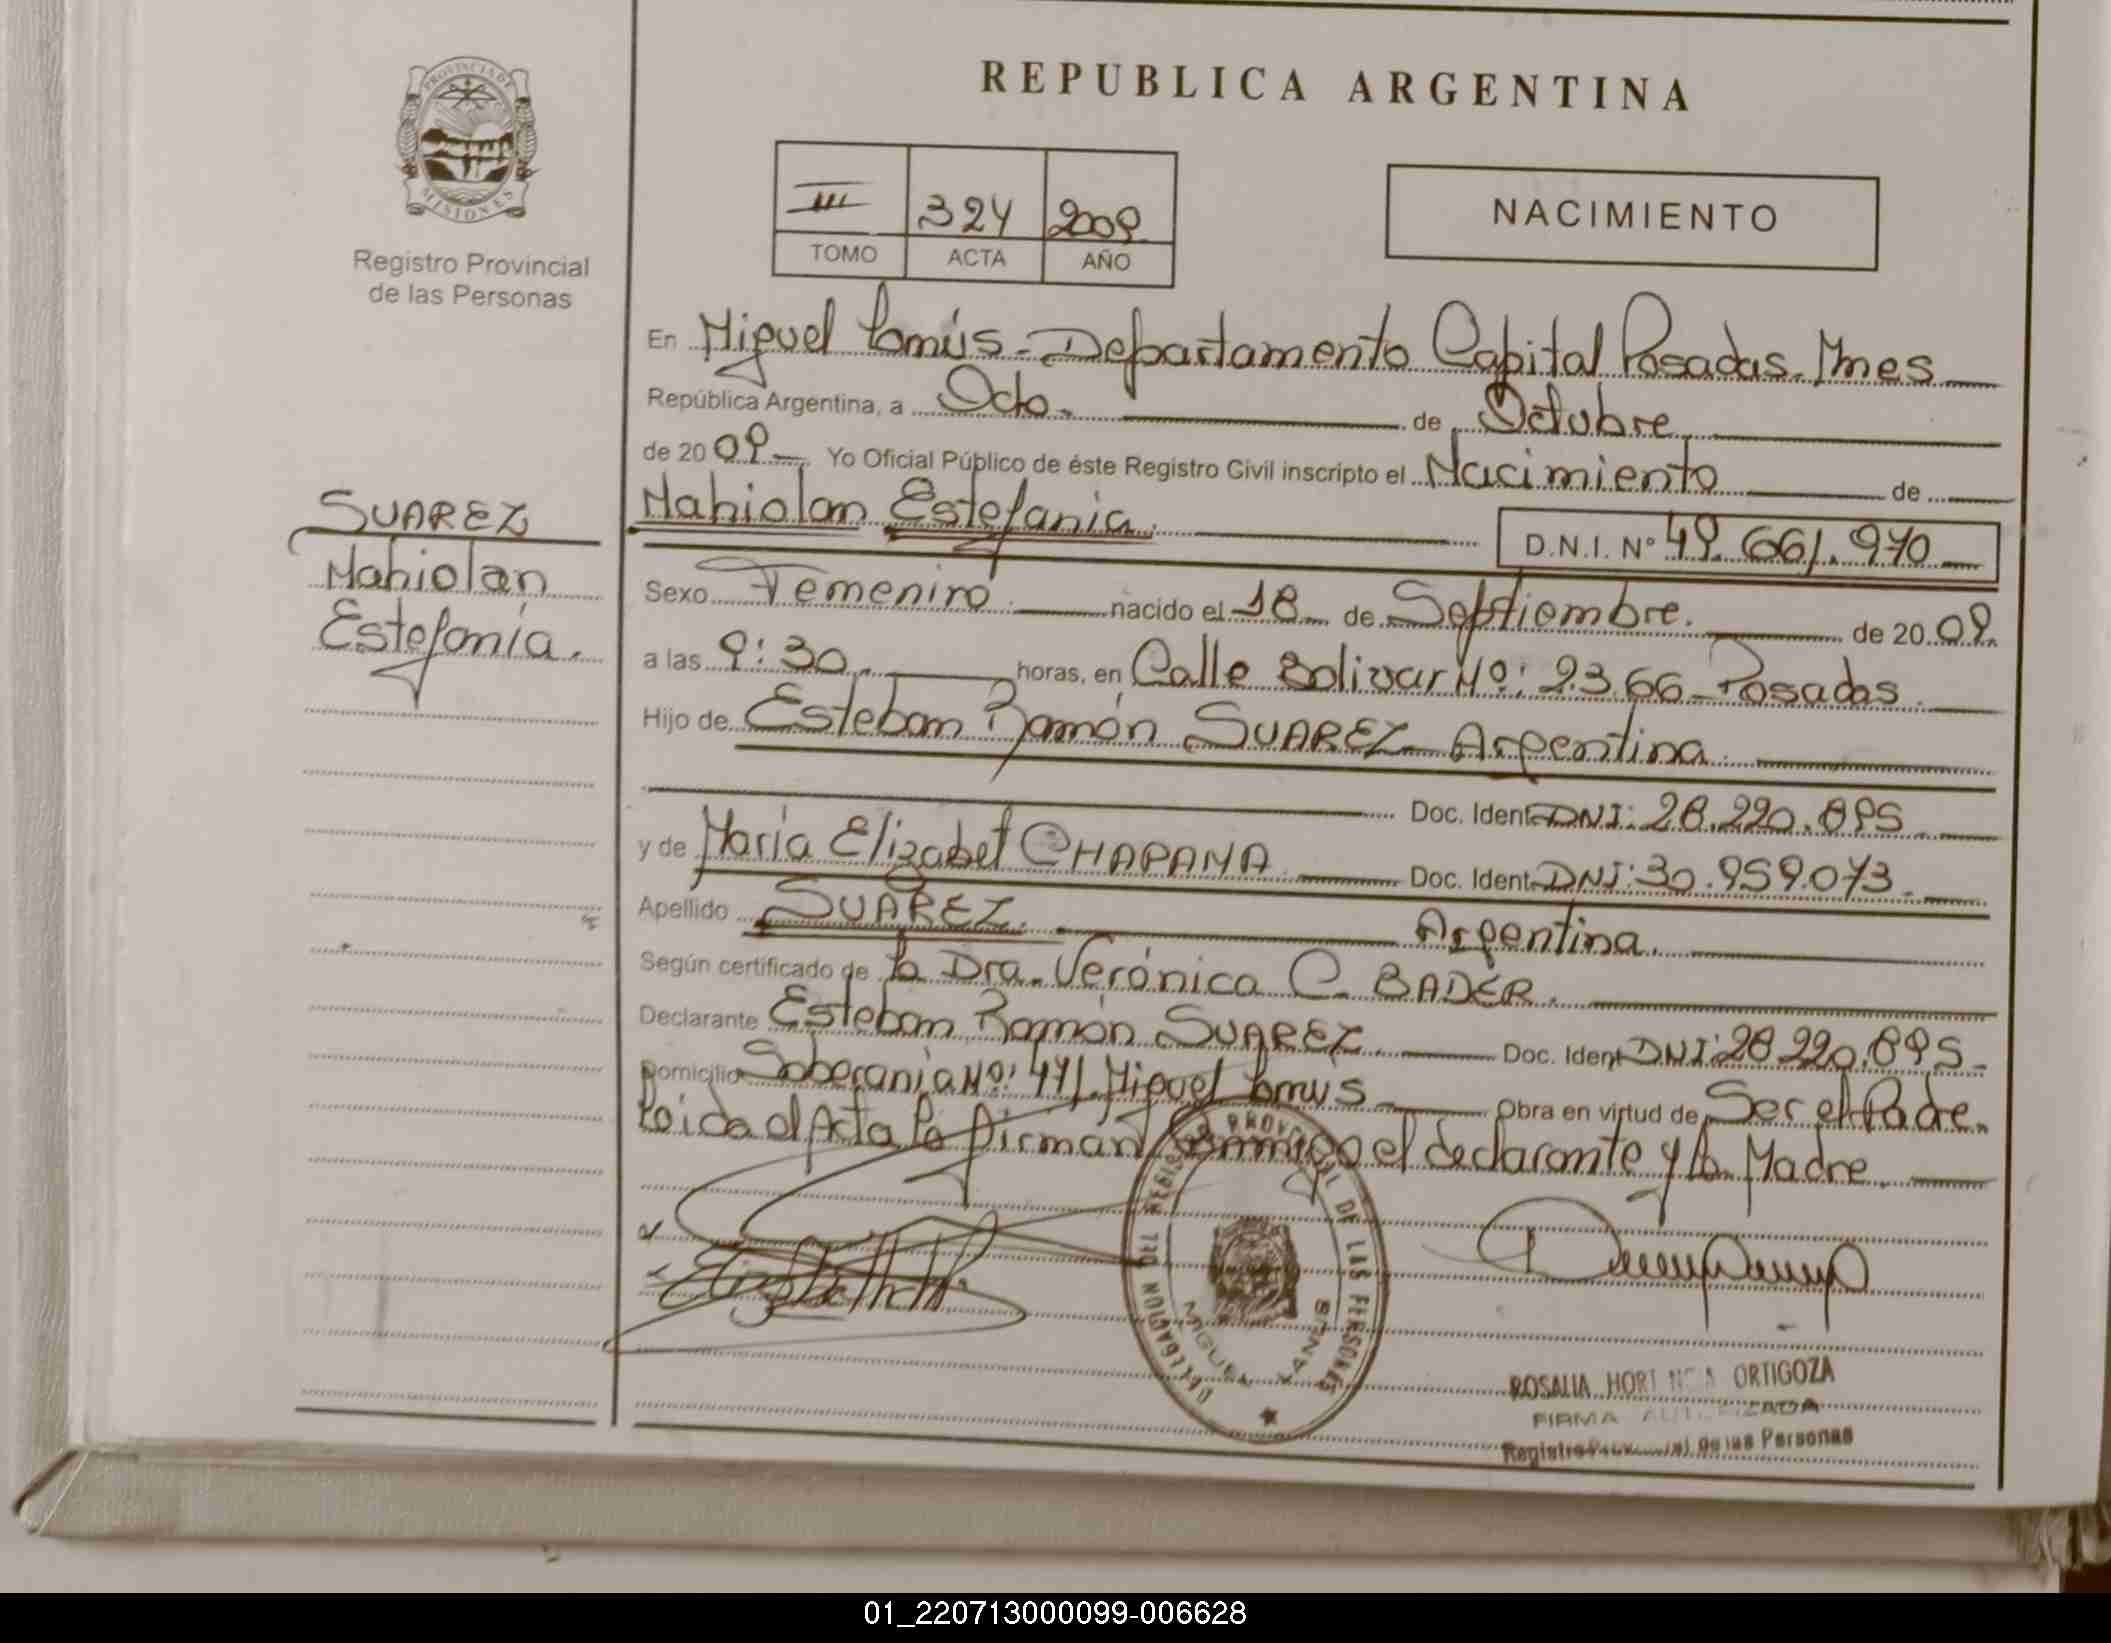 REPUBLICA ARGENTINA
PROVINCIA DE
MISIONES
Registro Provincial
de las Personas
III 324 2009
TOMO ACTA AÑO
NACIMIENTO
En Miguel Lanús - Departamento Capital Posadas - Mnes
República Argentina, a Ocho. de Octubre
de 2009 Yo Oficial Público de éste Registro Civil inscripto el Nacimiento de
Nahiolan Estefanía. D.N.I. Nº 49.661.970
SUAREZ
Nahiolan
Estefanía.
Sexo Femenino. nacido el 18 de Septiembre. de 2009.
a las 9:30. horas, en Calle Bolivar Nº: 2366 - Posadas.
Hijo de Esteban Ramón SUAREZ - Argentina.
Doc. Ident. DNI: 28.220.895
y de María Elizabet CHAPANA Doc. Ident. DNI: 30.959.073.
Apellido SUAREZ. Argentina.
Según certificado de la Dra. Verónica C. BADER.
Declarante Esteban Ramón SUAREZ. Doc. Ident. DNI: 28.220.895
Domicilio Soberanía Nº: 471 Miguel Lanús Obra en virtud de Ser el Padre.
Leida el Acta la firman conmigo el declarante y la Madre.
DELEGACION DEL REGISTRO PROVINCIAL DE LAS PERSONAS
MIGUEL LANUS
ROSALIA HORTENCIA ORTIGOZA
FIRMA AUTORIZADA
Registro Provincial de las Personas
01_220713000099-006628